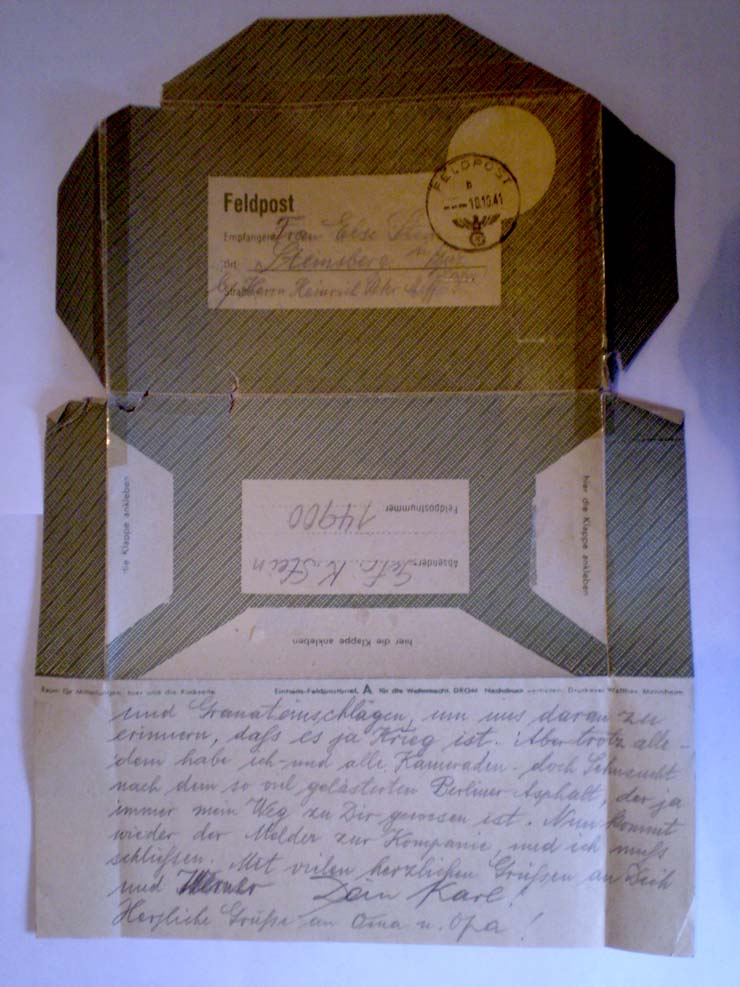 FELDPOST
b
10.10.41
Feldpost
Empfänger: Frau Else
Ort: Steinsberg
Straße: b/ Herrn Heinrich
hier die Klappe ankleben
die Klappe ankleben
Feldpostnummer 14900
Absender: Gefr. K. Stein
hier die Klappe ankleben
Raum für Mitteilungen, hier und die Rückseite
Einheits-Feldpostbrief A für die Wehrmacht. DRGM. Nachdruck verboten. Druckerei Walther Mannheim
und Granateinschlägen, um uns daran zu
erinnern, daß es ja Krieg ist. Aber trotz alle-
dem habe ich und alle Kameraden doch Sehnsucht
nach dem so viel gelästerten Berliner Asphalt, der ja
immer mein Weg zu Dir gewesen ist. Nun kommt
wieder der Melder zur Kompanie, und ich muß
schließen. Mit vielen herzlichen Grüßen an Dich
und Werner Dein Karl!
Herzliche Grüße an Oma u. Opa!